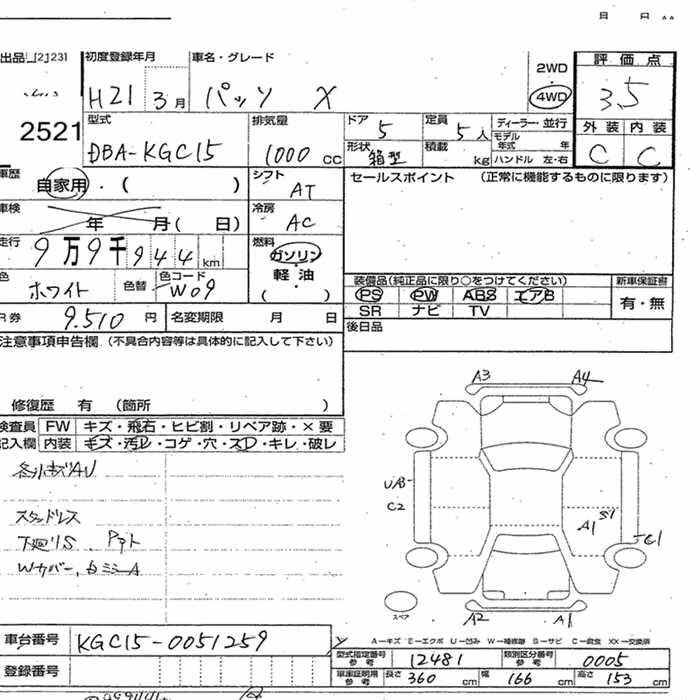 月 日
出品 [2123]
初度登録年月 車名・グレード
H21 3月 パッソ X
2WD
4WD
評価点
3.5
外装 内装
C C
2521
型式 排気量 ドア 定員 ディーラー・並行
DBA-KGC15 1000 cc 5 5人
モデル年式 年
形状 積載 ハンドル 左・右
箱型 kg
車歴 自家用・( )
シフト AT
セールスポイント (正常に機能するものに限ります)
車検 年 月( 日)
冷房 AC
走行 9万9千944km
燃料 ガソリン・軽油 ( )
色 ホワイト 色替 色コード W09
装備品(純正品に限り○をつけてください) 新車保証書
PS PW ABS エアB 有・無
SR ナビ TV
R券 9.510円 名変期限 月 日
後日品
注意事項申告欄 (不具合内容等は具体的に記入して下さい)
修復歴 有 (箇所 )
検査員 FW キズ・飛石・ヒビ割・リペア跡・×要
記入欄 内装 キズ・汚レ・コゲ・穴・スレ・キレ・破レ
A3 A4
スタッドレス
下廻りS
Wカバー
C2
A1 S1
スペア
A2 A1
車台番号 KGC15-0051259
A-キズ E-エクボ U-凹み W-補修跡 S-サビ C-腐食 XX-交換済
型式指定番号 参考 12481 類別区分番号 参考 0005
登録番号
車庫証明用 参考 長さ 360 cm 幅 166 cm 高さ 153 cm